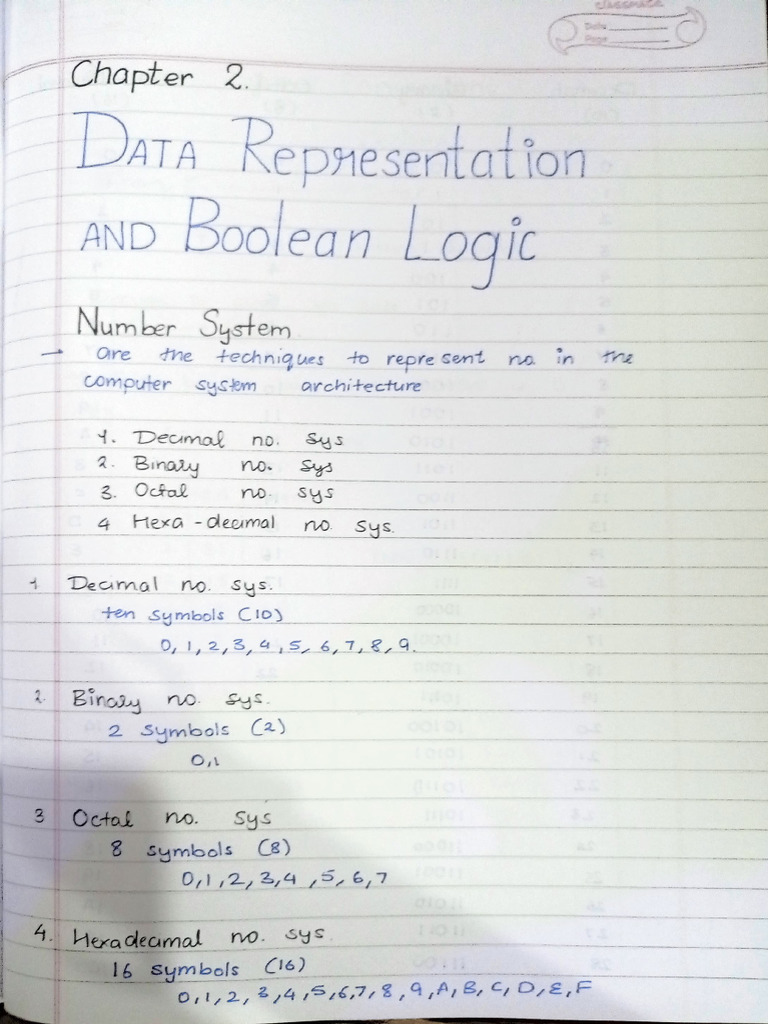 classmate
Date
Page
Chapter 2.
DATA Representation
AND Boolean Logic
Number System
→ are the techniques to represent no. in the
computer system architecture
1. Decimal no. sys
2. Binary no. sys
3. Octal no. sys
4 Hexa-decimal no. sys.
1 Decimal no. sys.
ten symbols (10)
0, 1, 2, 3, 4, 5, 6, 7, 8, 9.
2. Binary no. sys.
2 symbols (2)
0,1
3 Octal no. sys
8 symbols (8)
0, 1, 2, 3, 4, 5, 6, 7
4. Hexadecimal no. sys.
16 symbols (16)
0, 1, 2, 3, 4, 5, 6, 7, 8, 9, A, B, C, D, E, F